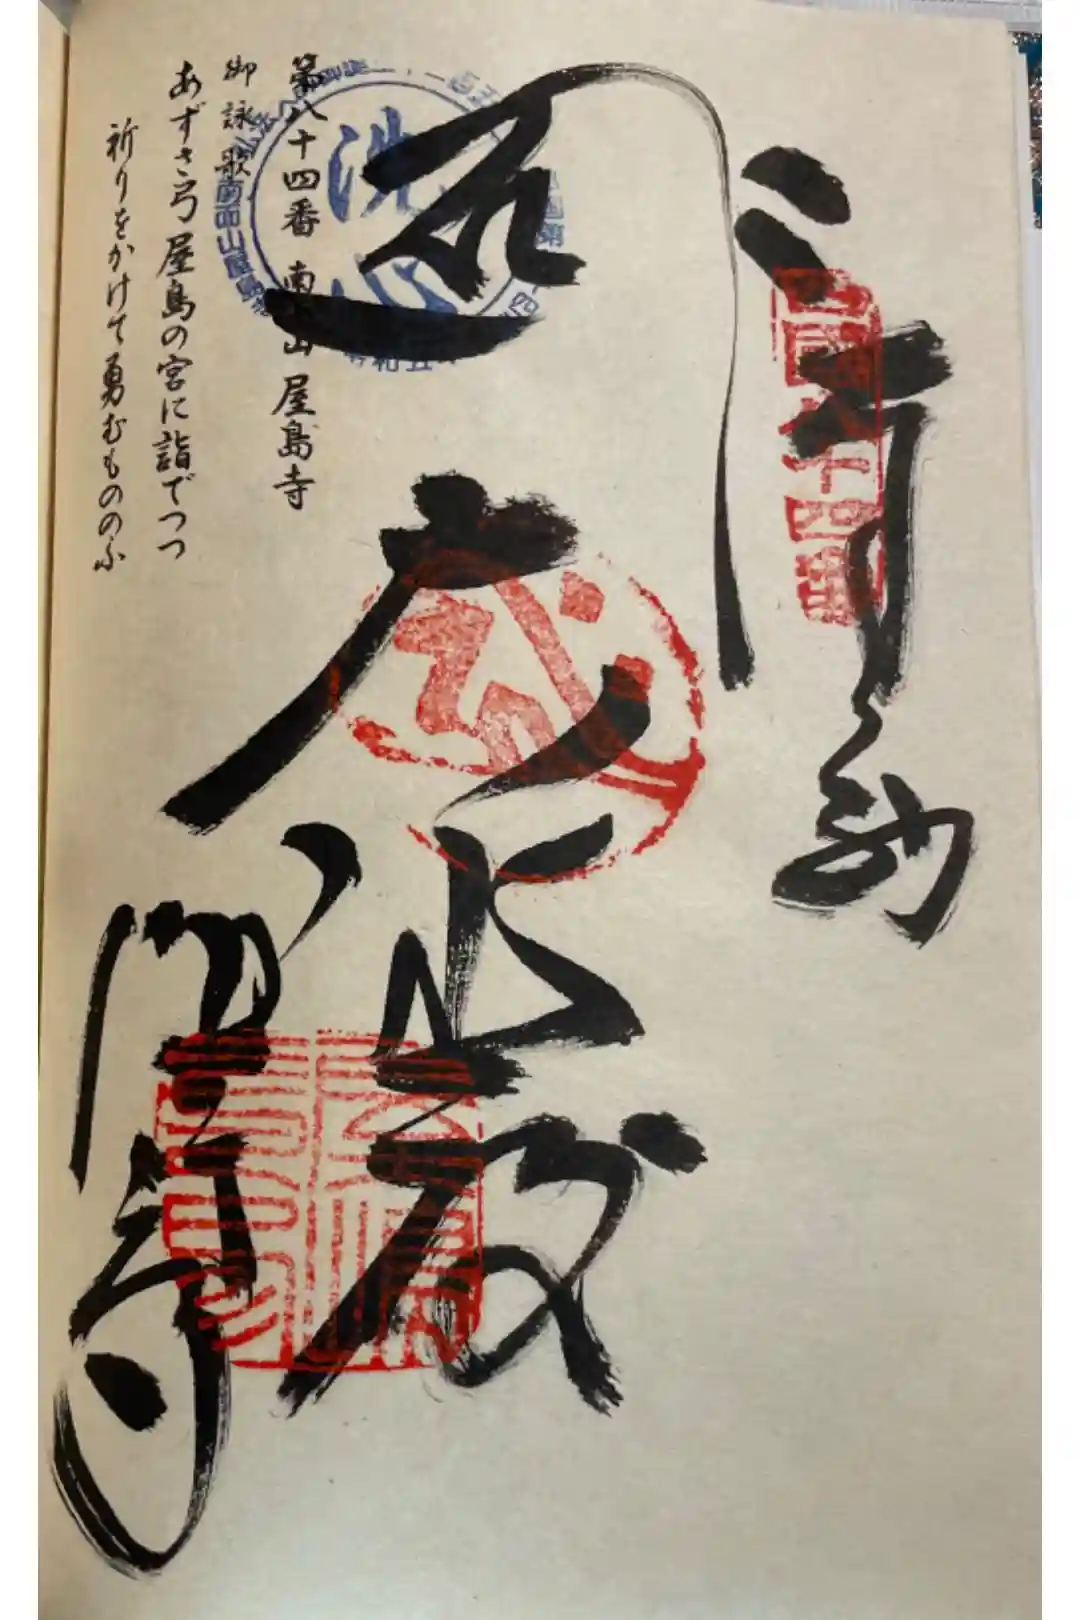 奉納
四國八十四番
大悲殿
屋島寺
第八十四番 南面山 屋島寺
御詠歌
あずさ弓 屋島の宮に詣でつつ
祈りをかけて勇むもののふ
洗心